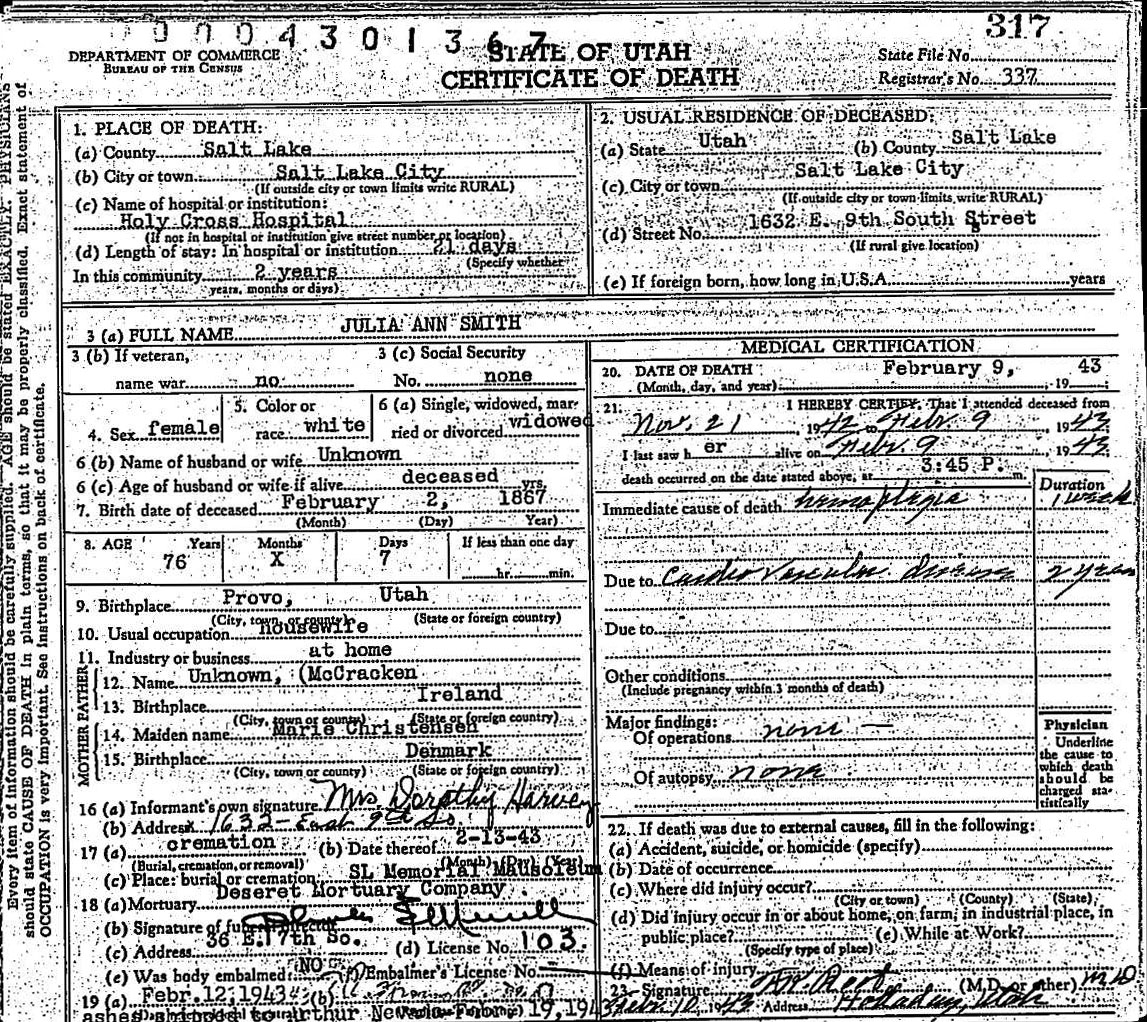 0004301367
317
DEPARTMENT OF COMMERCE
BUREAU OF THE CENSUS
STATE OF UTAH
CERTIFICATE OF DEATH
State File No.
Registrar's No. 337
Every item of information should be carefully supplied. AGE should be stated EXACTLY. PHYSICIANS
should state CAUSE OF DEATH in plain terms, so that it may be properly classified. Exact statement of
OCCUPATION is very important. See instructions on back of certificate.
1. PLACE OF DEATH:
(a) County Salt Lake
(b) City or town Salt Lake City
(If outside city or town limits write RURAL)
(c) Name of hospital or institution:
Holy Cross Hospital
(If not in hospital or institution give street number or location)
(d) Length of stay: In hospital or institution 21 days
(Specify whether
In this community 2 years
years, months or days)
2. USUAL RESIDENCE OF DECEASED:
(a) State Utah (b) County Salt Lake
(c) City or town Salt Lake City
(If outside city or town limits write RURAL)
(d) Street No. 1632 E. 9th South Street
(If rural give location)
(e) If foreign born, how long in U.S.A. years
3 (a) FULL NAME JULIA ANN SMITH
3 (b) If veteran,
name war no
3 (c) Social Security
No. none
4. Sex female
5. Color or
race white
6 (a) Single, widowed, mar-
ried or divorced widowed
6 (b) Name of husband or wife Unknown
6 (c) Age of husband or wife if alive deceased yrs.
7. Birth date of deceased February 2, 1867
(Month) (Day) Year)
8. AGE Years Months Days If less than one day
76 X 7 hr. min.
9. Birthplace Provo, Utah
(City, town, or county) (State or foreign country)
10. Usual occupation housewife
11. Industry or business at home
FATHER
12. Name Unknown, (McCracken
13. Birthplace Ireland
(City, town or county) (State or foreign country)
MOTHER
14. Maiden name Marie Christensen
15. Birthplace Denmark
(City, town or county) (State or foreign country)
16 (a) Informant's own signature Mrs Dorothy Harvey
(b) Address 1632 - East 9th So.
17 (a) cremation (b) Date thereof 2-13-43
(Burial, cremation, or removal) (Month) (Day) (Year)
(c) Place: burial or cremation SL Memorial Mausoleum
18 (a) Mortuary Deseret Mortuary Company
(b) Signature of funeral director
(c) Address 36 E. 7th So. (d) License No. 103.
(e) Was body embalmed: NO (f) Embalmer's License No.
19 (a) Febr. 12, 1943 (b)
ashes shipped to Arthur
MEDICAL CERTIFICATION
20. DATE OF DEATH February 9, 1943
(Month, day, and year)
21. I HEREBY CERTIFY, That I attended deceased from
Nov, 21 1942 to Febr. 9 1943
I last saw her alive on Febr. 9 1943
death occurred on the date stated above, at 3:45 P. m.
Duration
Immediate cause of death hemoplegia 1 week
Due to Cardio Vascular Disease 2 years
Due to
Other conditions
(Include pregnancy within 3 months of death)
Major findings:
Of operations none —
Of autopsy none
Physician
Underline
the cause to
which death
should be
charged sta-
tistically
22. If death was due to external causes, fill in the following:
(a) Accident, suicide, or homicide (specify)
(b) Date of occurrence
(c) Where did injury occur?
(City or town) (County) (State)
(d) Did injury occur in or about home, on farm, in industrial place, in
public place? (e) While at Work?
(Specify type of place)
(f) Means of injury
23. Signature (M.D. or other) MD
Febr 10 1943 Address Holladay, Utah